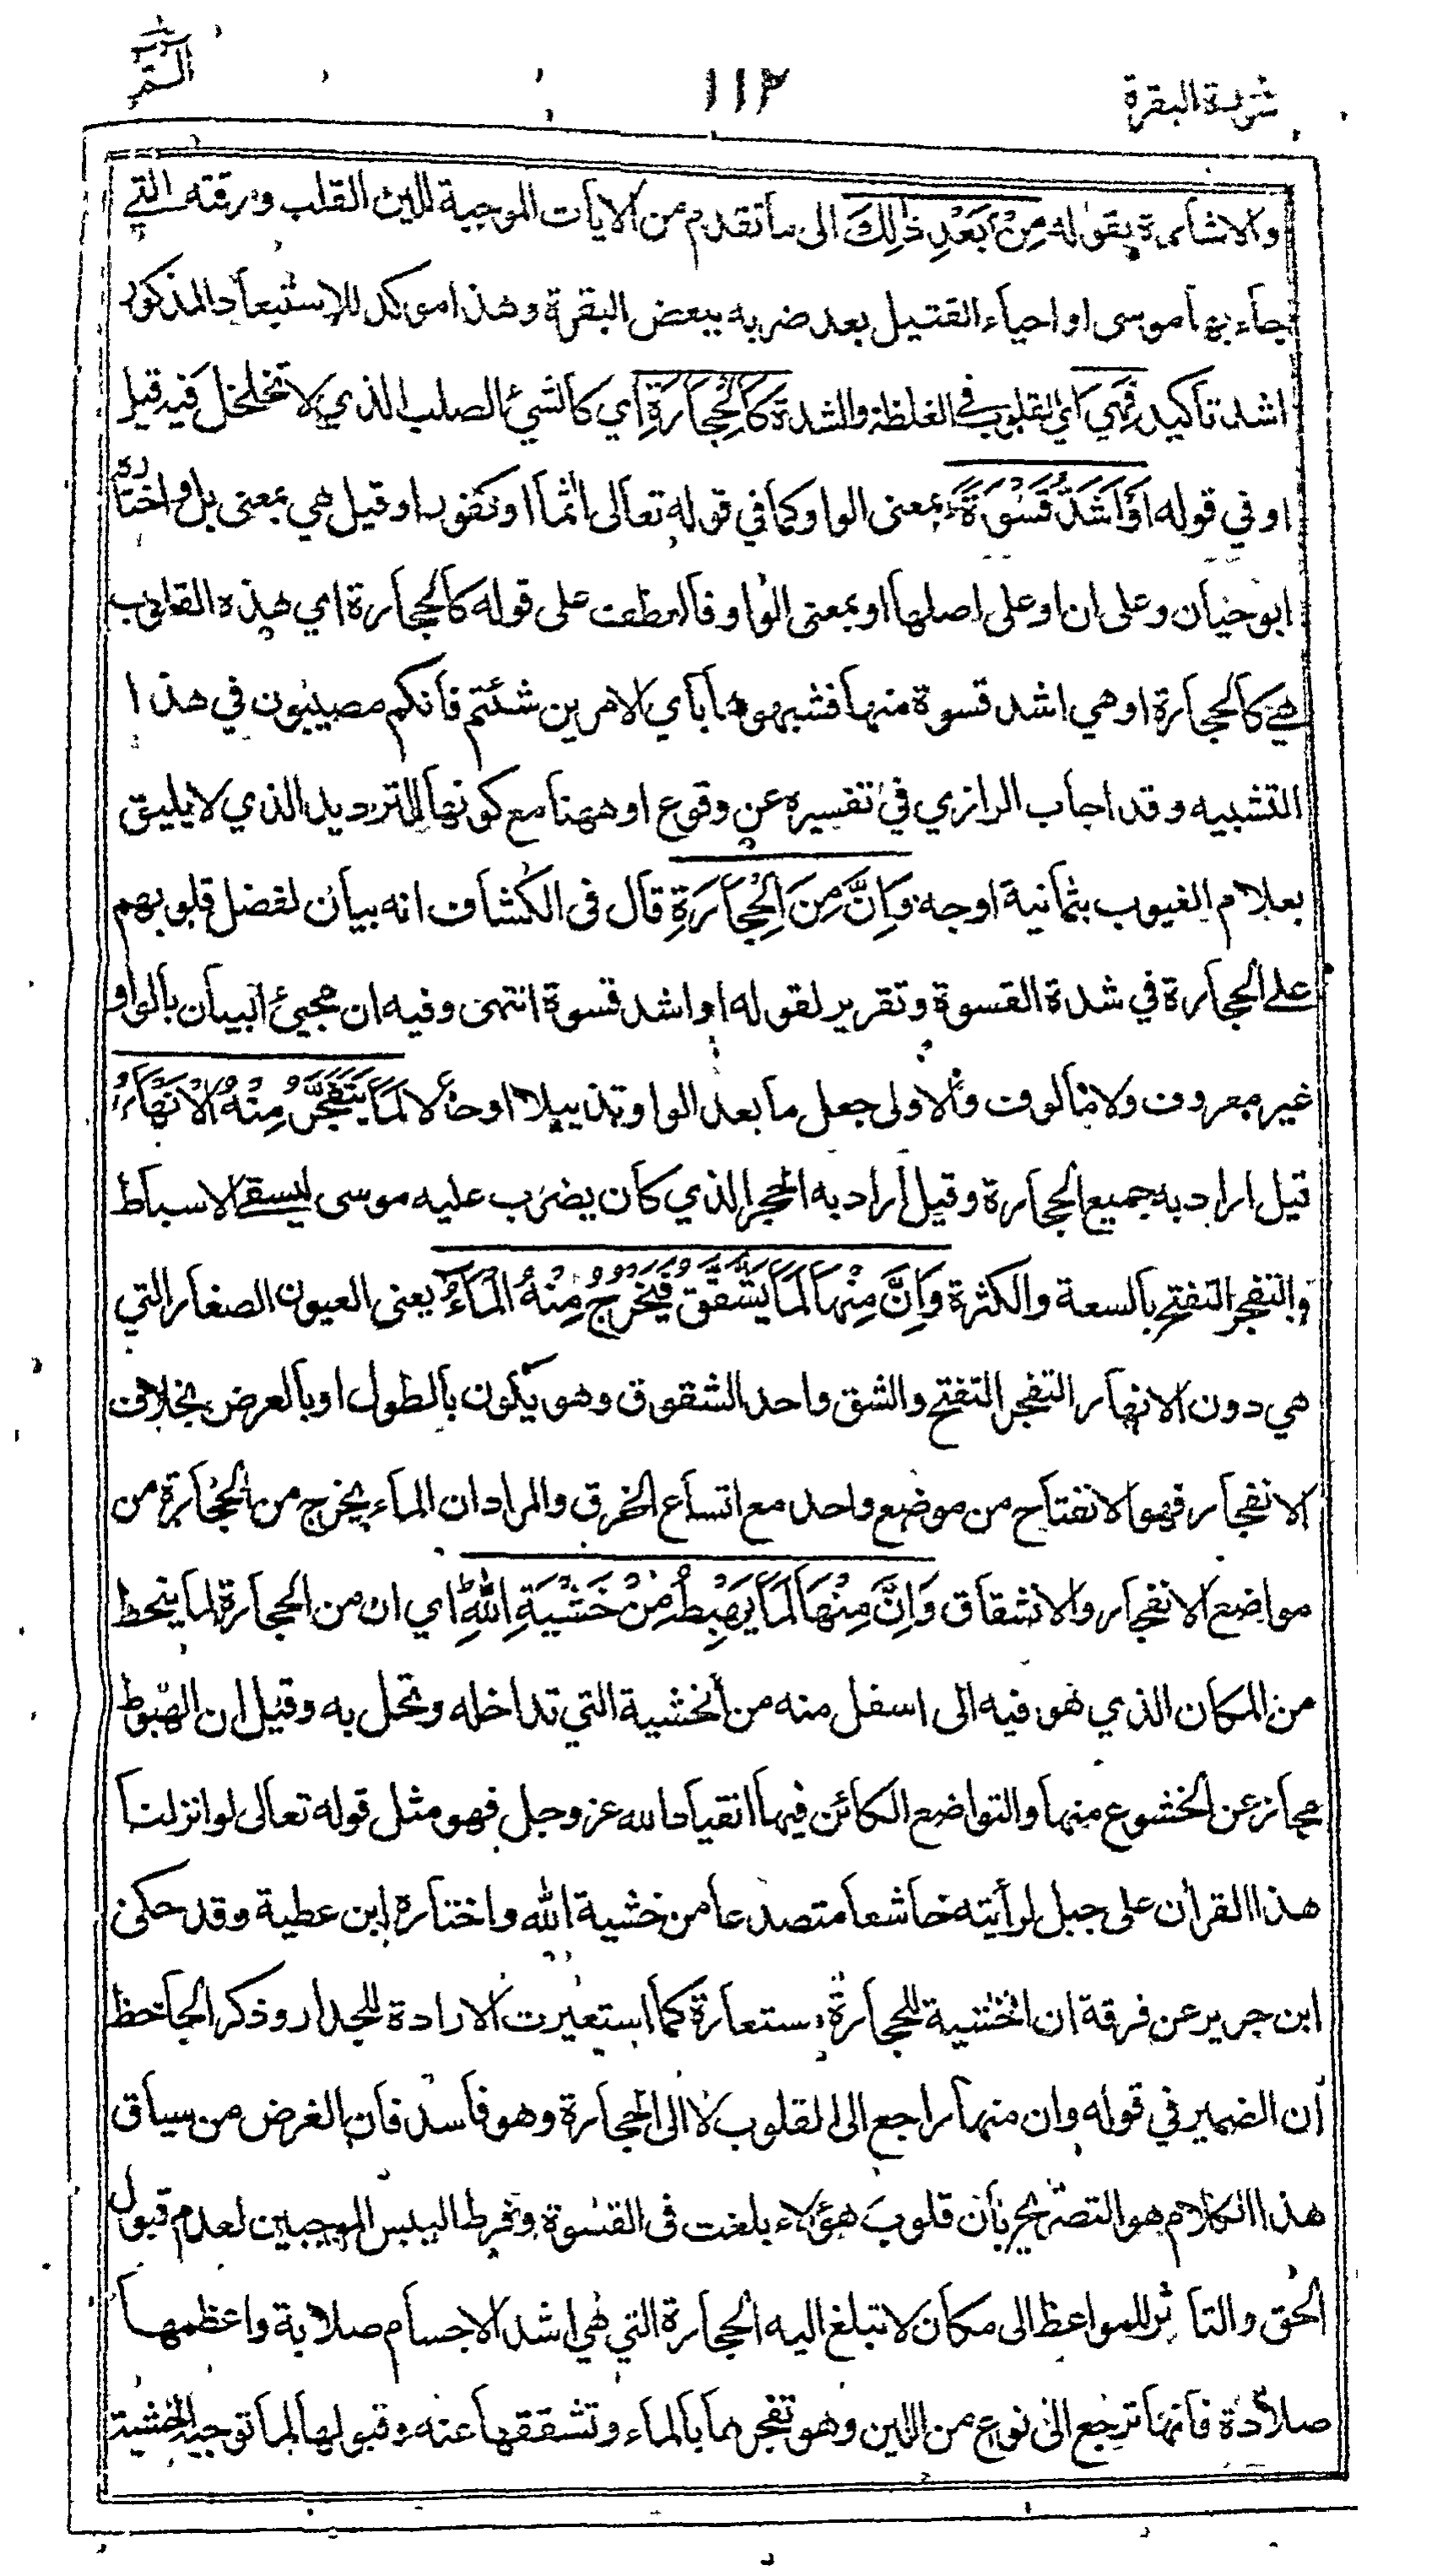 سورة البقرة ١١٢ الٓمّ
والاشارة بقوله مِنْ بَعْدِ ذٰلِكَ الى ما تقدم من الايات الموجبة للين القلب ورقته التي
جاء بها موسى او احياء القتيل بعد ضربه ببعض البقرة وهذا موكد للاستبعاد المذكور
اشد تاكيد فَهِيَ اي القلوب في الغلظة والشدة كَالْحِجَارَةِ اي كالشيئ الصلب الذي لا تخلخل فيه قيل
او في قوله اَوْ اَشَدُّ قَسْوَةً بمعنى الواو كما في قوله تعالى اثما او كفورا وقيل هي بمعنى بل واختاره
ابو حيان وعلى ان او على اصلها او بمعنى الواو فالعطف على قوله كالحجارة اي هذه القلوب
هي كالحجارة او هي اشد قسوة منها فشبهوها باي الامرين شئتم فانكم مصيبون في هذا
التشبيه وقد اجاب الرازي في تفسيره عن وقوع او ههنا مع كونها للترديد الذي لا يليق
بعلام الغيوب بثمانية اوجه وَاِنَّ مِنَ الْحِجَارَةِ قال فى الكشاف انه بيان لفضل قلوبهم
على الحجارة في شدة القسوة وتقرير لقوله او اشد قسوة انتهى وفيه ان مجيئ البيان بالواو
غير معروف ولا مالوف والاولى جعل ما بعد الواو تذييلا او حالا لَمَا يَتَفَجَّرُ مِنْهُ الْاَنْهَارُ
قيل اراد به جميع الحجارة وقيل اراد به الحجر الذي كان يضرب عليه موسى ليسقي الاسباط
والتفجر التفتح بالسعة والكثرة وَاِنَّ مِنْهَا لَمَا يَشَّقَّقُ فَيَخْرُجُ مِنْهُ الْمَاءُ يعنى العيون الصغار التي
هي دون الانهار التفجر التفتح والشق واحد الشقوق وهو يكون بالطول او بالعرض بخلاف
الانفجار فهو الانفتاح من موضع واحد مع اتساع الخرق والمراد ان الماء يخرج من الحجارة من
مواضع الانفجار والانشقاق وَاِنَّ مِنْهَا لَمَا يَهْبِطُ مِنْ خَشْيَةِ اللّٰهِ اي ان من الحجارة لما ينحط
من المكان الذي هو فيه الى اسفل منه من الخشية التي تداخله وتحل به وقيل ان الهبوط
مجاز عن الخشوع منها والتواضع الكائن فيها انقيادا لله عز وجل فهو مثل قوله تعالى لو انزلنا
هذا القران على جبل لرأيته خاشعا متصدعا من خشية الله واختاره ابن عطية وقد حكى
ابن جرير عن فرقة ان الخشية للحجارة مستعارة كما استعيرت الارادة للجدار وذكر الجاحظ
ان الضمير في قوله وان منها راجع الى القلوب لا الى الحجارة وهو فاسد فان الغرض من سياق
هذا الكلام هو التصريح بان قلوب هؤلاء بلغت فى القسوة وفرط اليبس الموجبين لعدم قبول
الحق والتاثر للمواعظ الى مكان لا تبلغ اليه الحجارة التي هي اشد الاجسام صلابة واعظمها
صلادة فانها ترجع الى نوع من اللين وهو تفجرها بالماء وتشققها عنه وقبولها لما توجبه الخشية